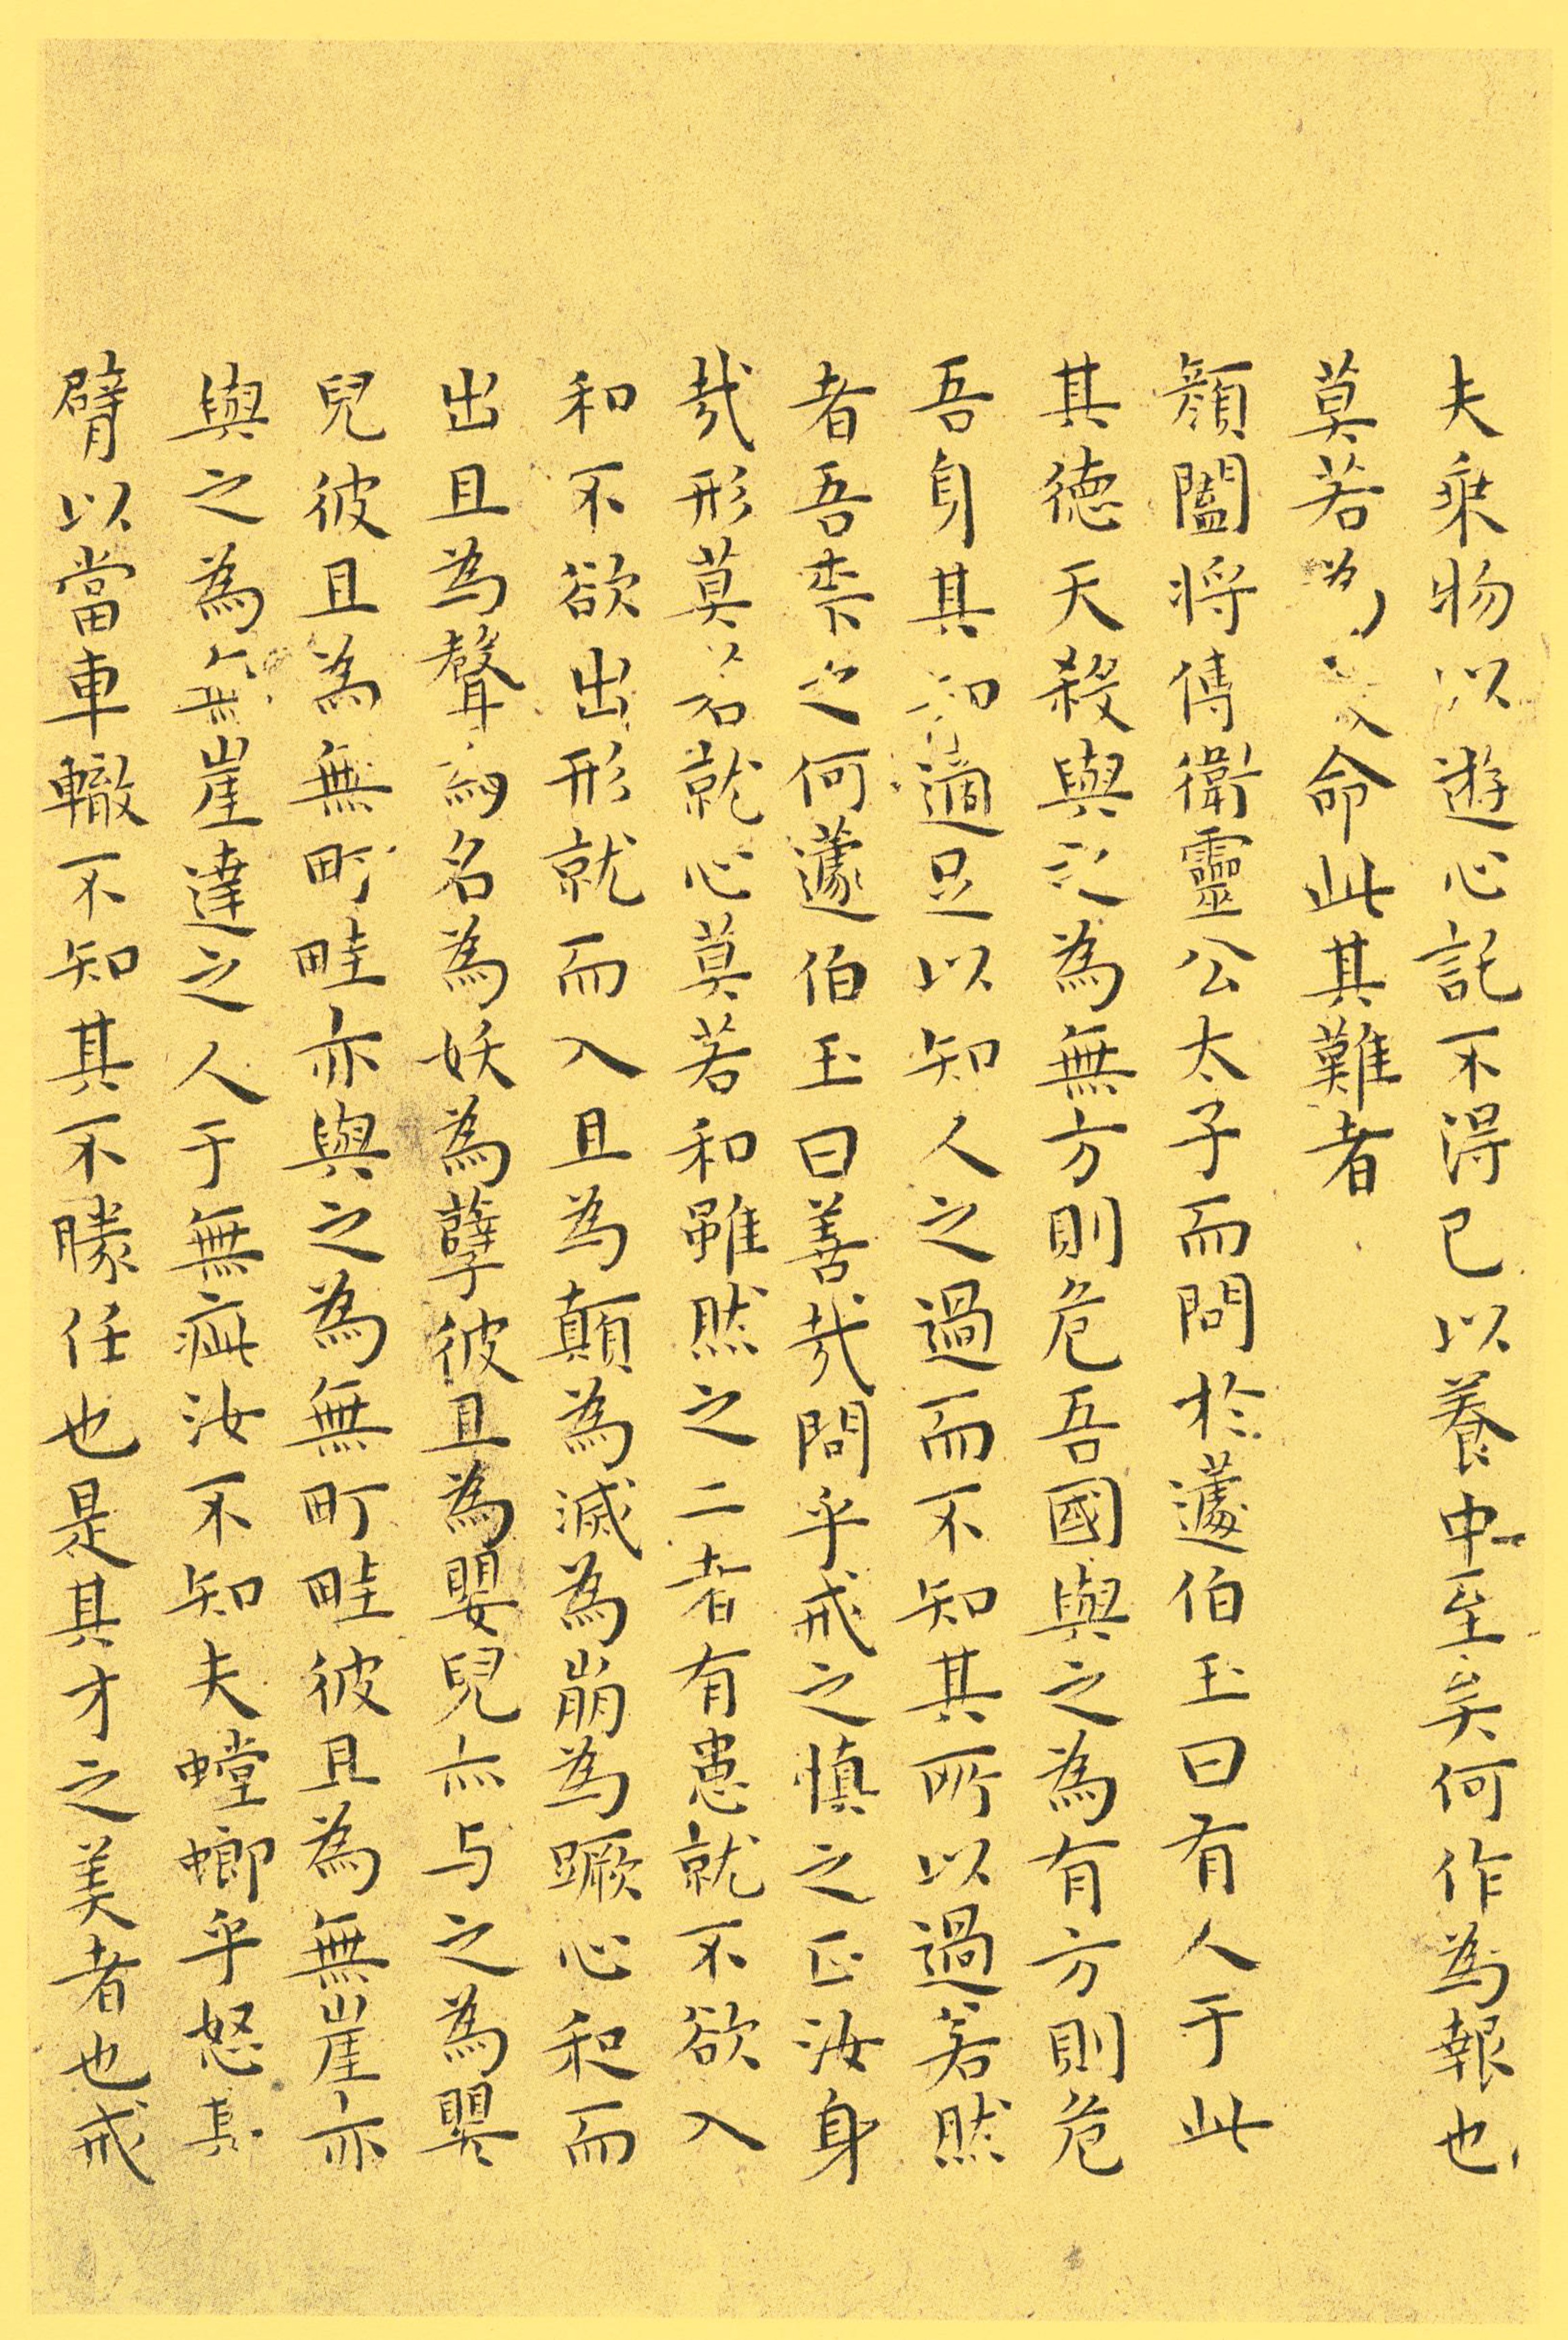 夫乘物以遊心託不得已以養中至矣何作為報也
莫若為命此其難者
顏闔將傅衛靈公太子而問於蘧伯玉曰有人于此
其德天殺與之為無方則危吾國與之為有方則危
吾身其知適足以知人之過而不知其所以過若然
者吾柰之何蘧伯玉曰善哉問乎戒之慎之正汝身
哉形莫若就心莫若和雖然之二者有患就不欲入
和不欲出形就而入且為顛為滅為崩為蹶心和而
出且為聲為名為妖為孽彼且為嬰兒亦与之為嬰
兒彼且為無町畦亦與之為無町畦彼且為無崖亦
與之為無崖達之人于無疵汝不知夫螳螂乎怒其
臂以當車轍不知其不勝任也是其才之美者也戒